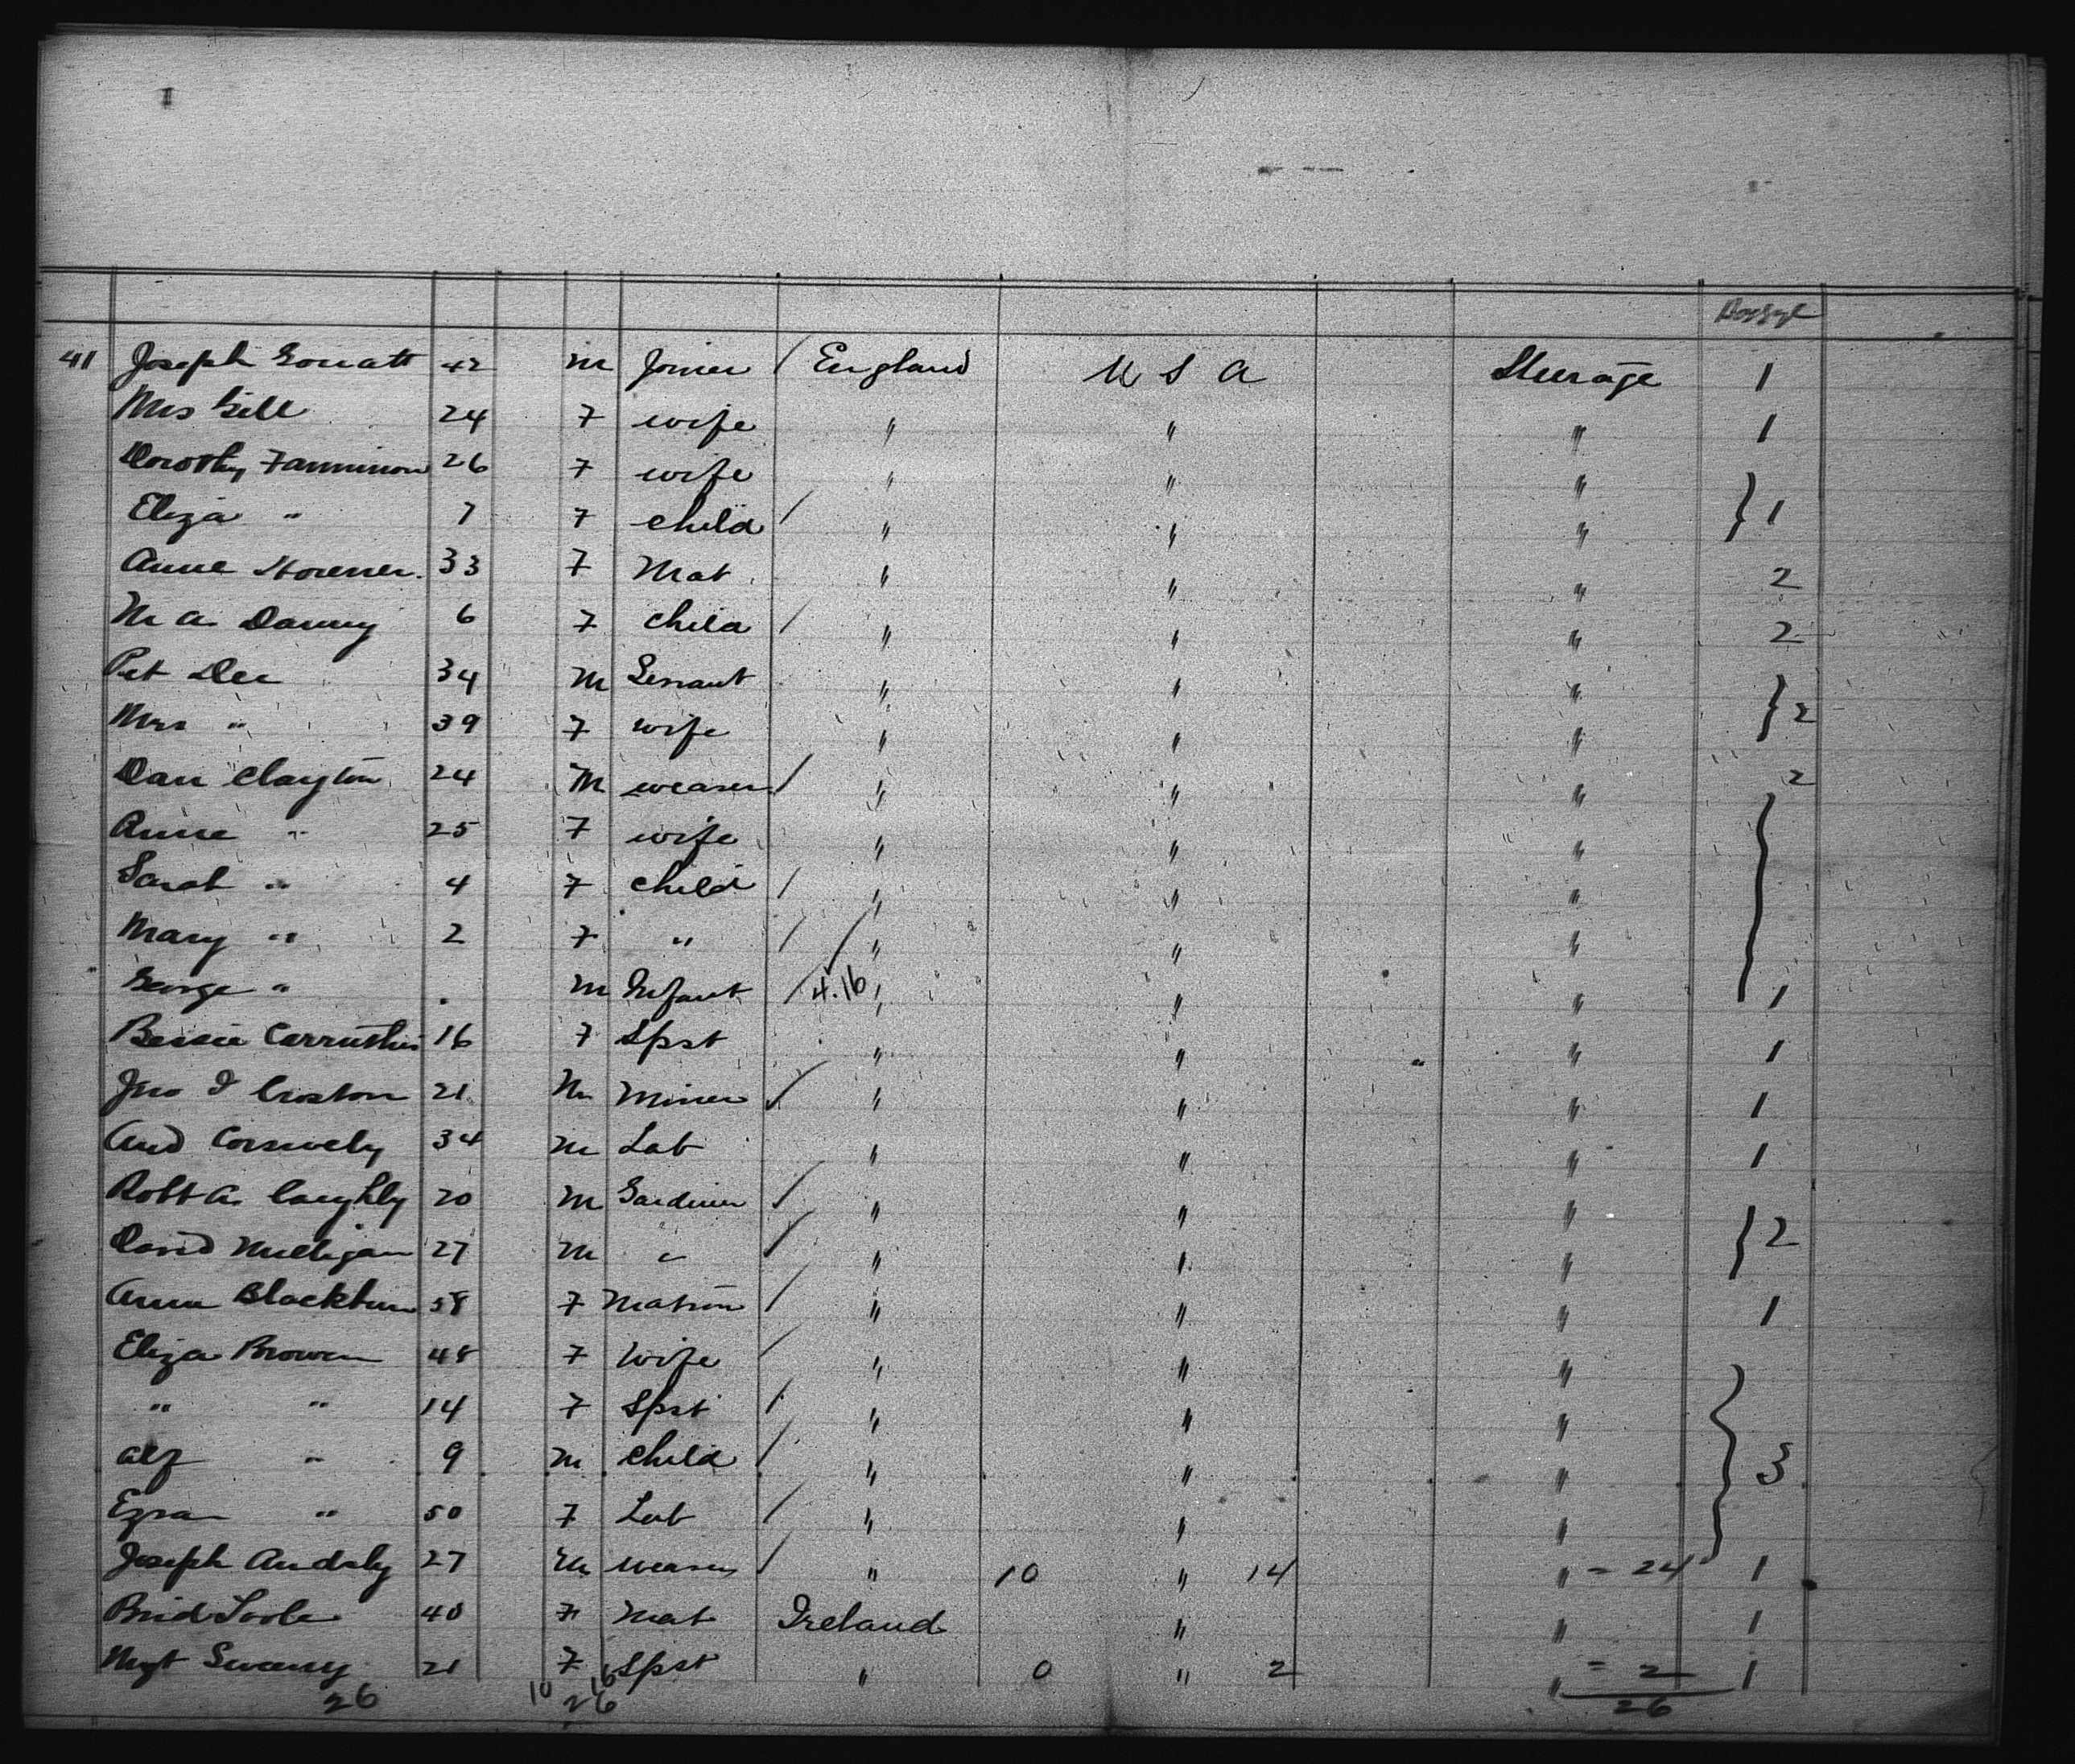 Baggge
41 Joseph 42 m Joiner / England U S A Steerage 1
Mrs Gill 24 7 wife " " " 1
Dorothy 26 7 wife " " "
Eliza " 7 7 child / " " " } 1
Anne 33 7 Mat. " " " 2
M a 6 7 child / " " " 2
Pat Dee 34 m Servant " " "
Mrs " 39 7 wife " " " } 2
Dan Clayton 24 m weaver / " " " 2
Anne " 25 7 wife " " "
Sarah " 4 7 child / " " "
Mary " 2 7 " / " " "
George " . m Infant / 4.16 " " " } 1
Bessie Carruthers 16 7 Spst " " " 1
Jno I Croston 21 m miner / " " " 1
And 34 m Lab " " " 1
Robt A. 20 m Gardiner / " " "
David Milligan 27 m " / " " " } 2
Anna Blackburn 58 7 Matron / " " " 1
Eliza Brown 48 7 wife / " " "
" " 14 7 Spst / " " "
Alf " 9 m child / " " " } 3
Ezra " 50 7 Lab / " " "
Joseph Audsly 27 m weaver / " 10 " 14 " = 24 1
Brid Toole 40 7 Mat Ireland " " 1
Mgt Sweeny 21 7 Spst " 0 " 2 " = 2 1
26 10 16 26 26